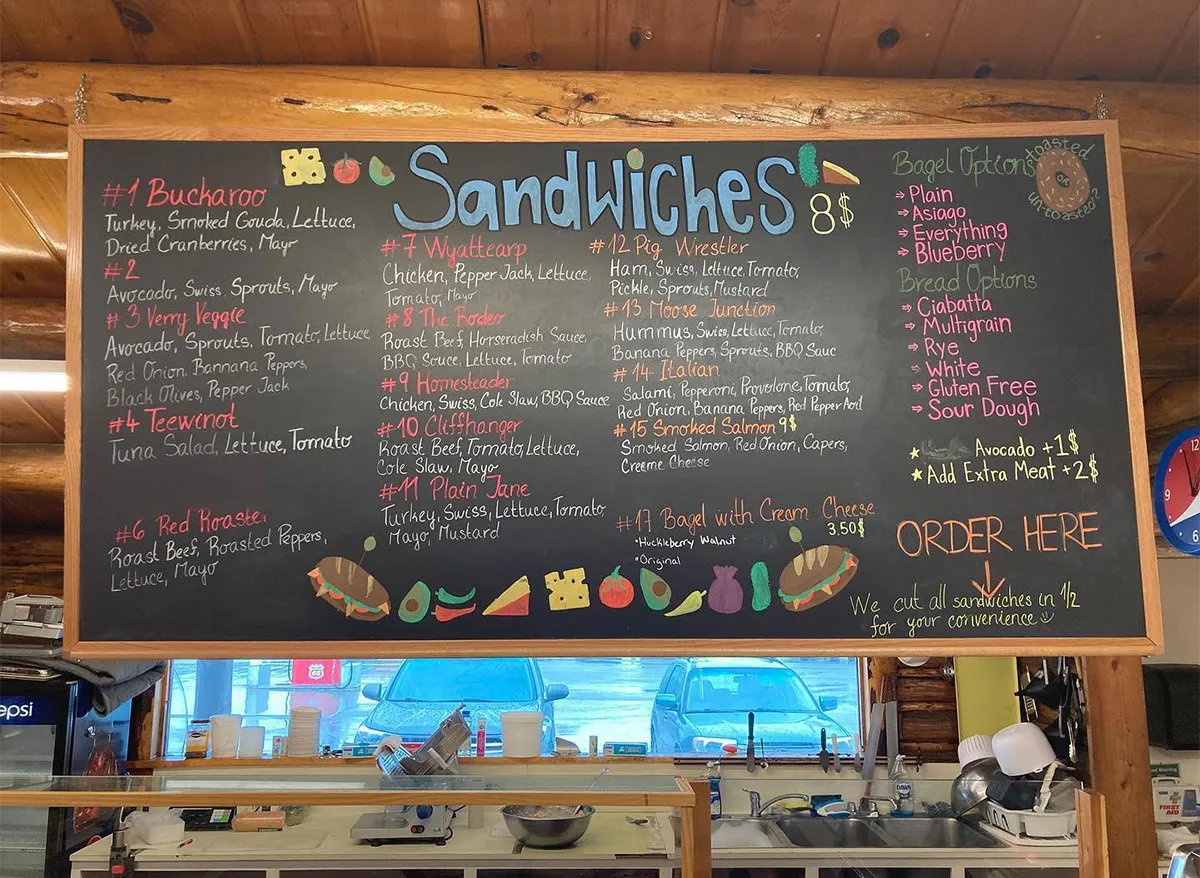 Sandwiches 8$
#1 Buckaroo
Turkey, Smoked Gouda, Lettuce,
Dried Cranberries, Mayo
#2
Avocado, Swiss Sprouts, Mayo
#3 Verry Veggie
Avocado, Sprouts, Tomato, Lettuce
Red Onion, Bannana Peppers,
Black Olives, Pepper Jack
#4 Teewinot
Tuna Salad, Lettuce, Tomato
#6 Red Roaster
Roast Beef, Roasted Peppers,
Lettuce, Mayo
#7 Wyattearp
Chicken, Pepper Jack, Lettuce,
Tomato, Mayo
#8 The Rodeo
Roast Beef, Horseradish Sauce,
BBQ Souce, Lettuce, Tomato
#9 Homesteader
Chicken, Swiss, Cole Slaw, BBQ Sauce
#10 Cliffhanger
Roast Beef, Tomato, Lettuce,
Cole Slaw, Mayo
#11 Plain Jane
Turkey, Swiss, Lettuce, Tomato
Mayo, Mustard
#12 Pig Wrestler
Ham, Swiss, Lettuce, Tomato,
Pickle, Sprouts, Mustard
#13 Moose Junction
Hummus, Swiss, Lettuce, Tomato,
Banana Peppers, Sprouts, BBQ Sauc
#14 Italian
Salami, Pepperoni, Provolone, Tomato,
Red Onion, Banana Peppers, Red Pepper
#15 Smoked Salmon 9$
Smoked Salmon, Red Onion, Capers,
Creme Cheese
#17 Bagel with Cream Cheese
3.50$
•Huckleberry Walnut
•Original
Bagel Options
toasted
or
un-toasted?
⇒ Plain
⇒ Asiago
⇒ Everything
⇒ Blueberry
Bread Options
⇒ Ciabatta
⇒ Multigrain
⇒ Rye
⇒ White
⇒ Gluten Free
⇒ Sour Dough
★ Avocado +1$
★ Add Extra Meat +2$
ORDER HERE
We cut all sandwiches in 1/2
for your convenience
pepsi
DAWN
FIRST AID
12
9
6